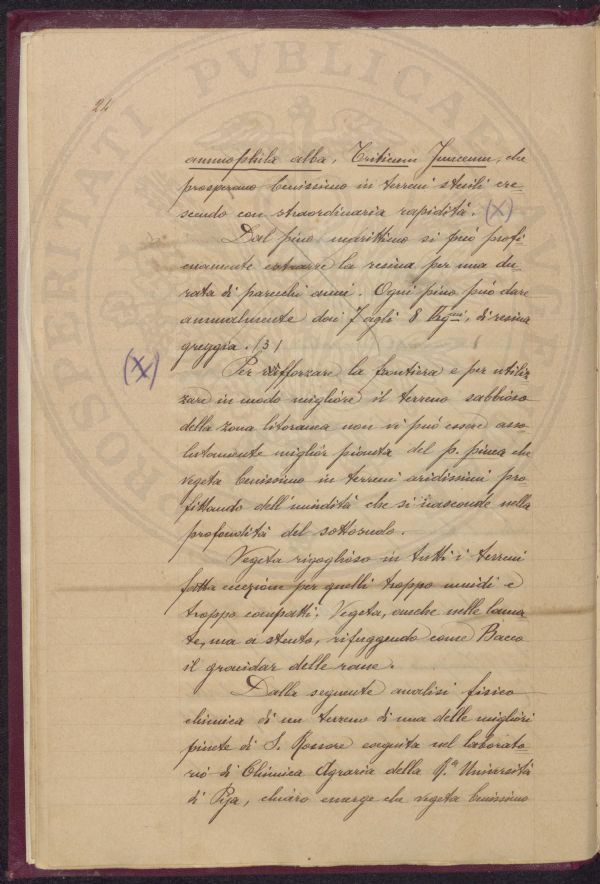 24
ammophila alba, Triticum Junceum, che
prosperano benissimo in terreni sterili cre-
scendo con straordinaria rapidità. (X)
Dal pino marittimo si può profi
cuamente estrarre la resina per una du-
rata di parecchi anni. Ogni pino può dare
annualmente dai 7 agli 8 di resina
greggia. (3)
(X)
Per rafforzare la frontiera e per utiliz
zare in modo migliore il terreno sabbioso
della zona litoranea non vi può essere asso-
lutamente miglior pianta del p. pinea che
vegeta benissimo in terreni aridissimi pro
fittando dell'umidità che si nasconde nella
profondità del sottosuolo.
Vegeta rigoglioso in tutti i terreni
fatta eccezion per quelli troppo umidi e
troppo compatti. Vegeta, anche nelle lama
te, ma a stento, rifuggendo come Bacco
il gracidar delle rane.
Dalla seguente analisi fisico
chimica di un terreno di una delle migliori
pinete di S. Rossore eseguita nel laborato-
rio di Chimica Agraria della R.a Università
di Pisa, chiaro emerge che vegeta benissimo
PROSPERITATI PVBLICAE